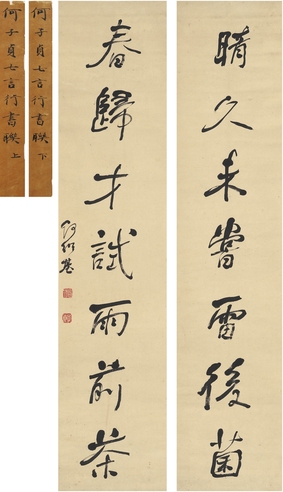 晴久未嘗雷後菌
春歸才試雨前茶
何紹基
何子貞七言行書聯下
何子貞七言行書聯上